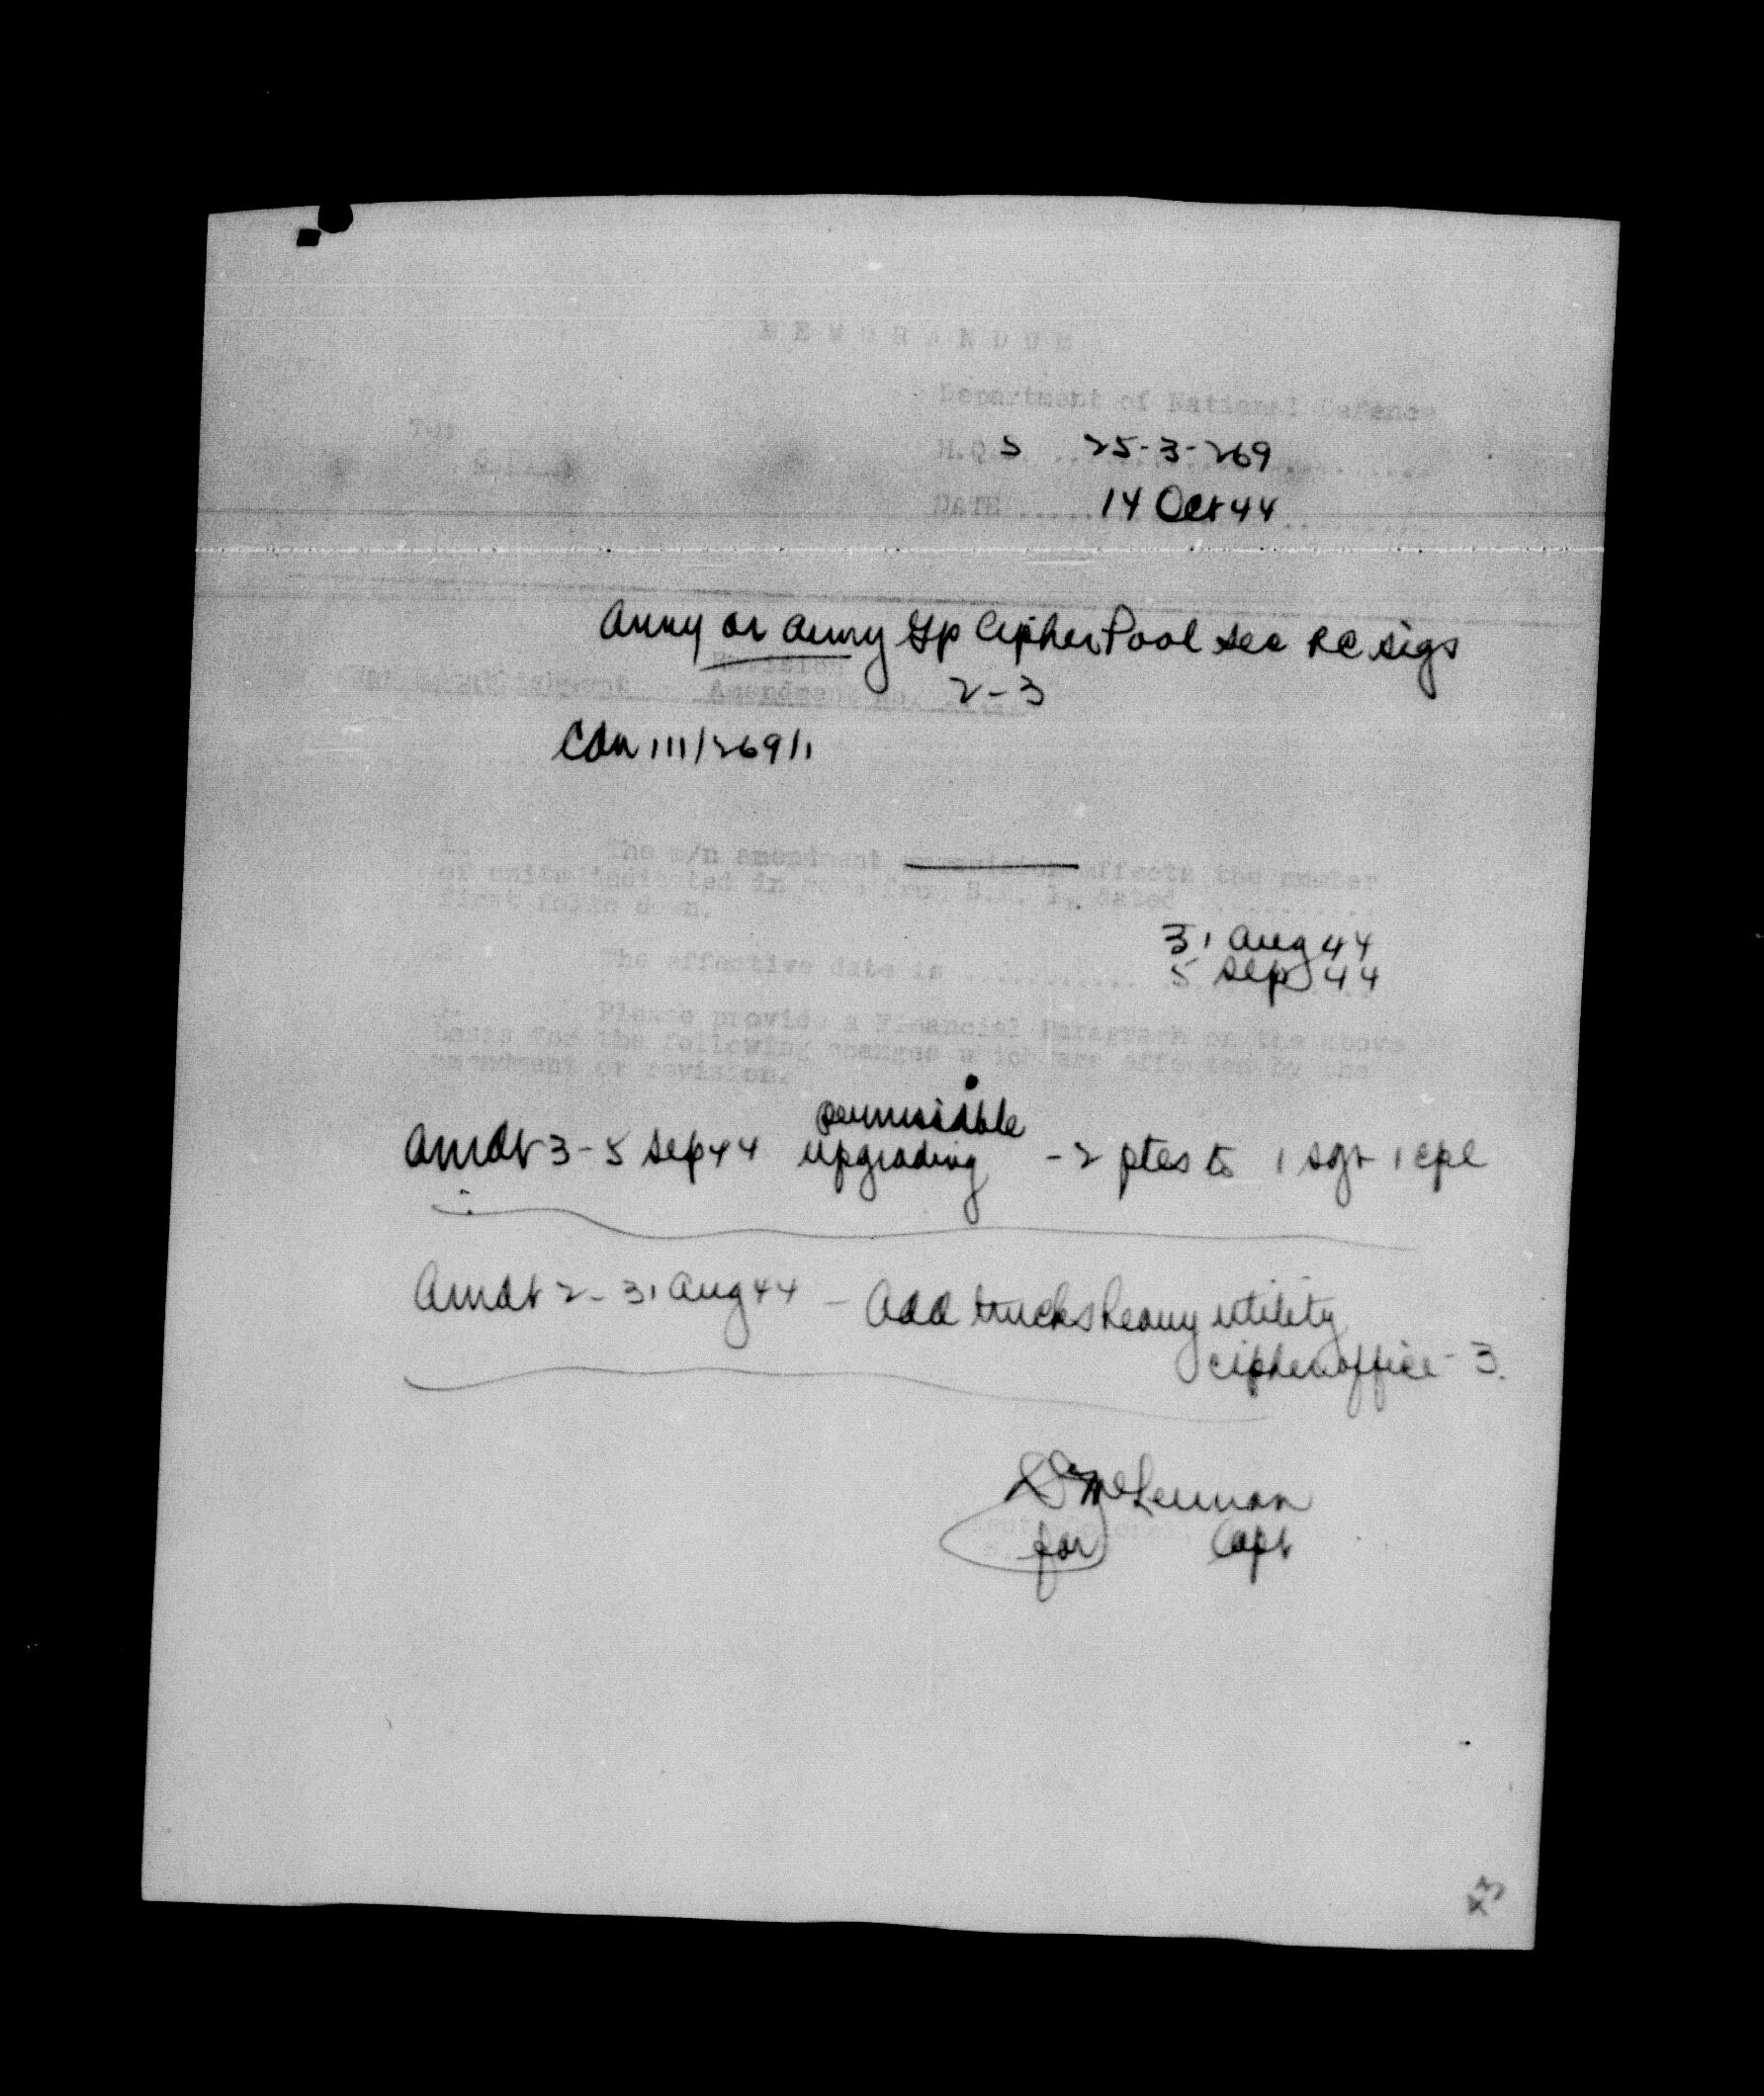 MEMORANDUM
Department of National Defence
TO:
H.Q. S 25-3-269
DATE ..... 14 Oct 44
Army or Army Gp Cipher Pool Sec RC Sigs
Revision
Amendment No. 2-3
Cdn III/269/1
1. The m/n amendment or revision affects the number
of units indicated in dated ...........
first folio down.
31 Aug 44
2. The effective date is ........... 5 Sep 44
3. Please provide a Financial Paragraph on the above
basis for the following changes which are affected by the
amendment or revision.
permissible
Amdt 3 - 5 Sep 44 upgrading - 2 ptes to 1 sgt 1 cpl
Amdt 2 - 31 Aug 44 - Add trucks heavy utility
cipher office - 3.
McLennan
for Capt
43